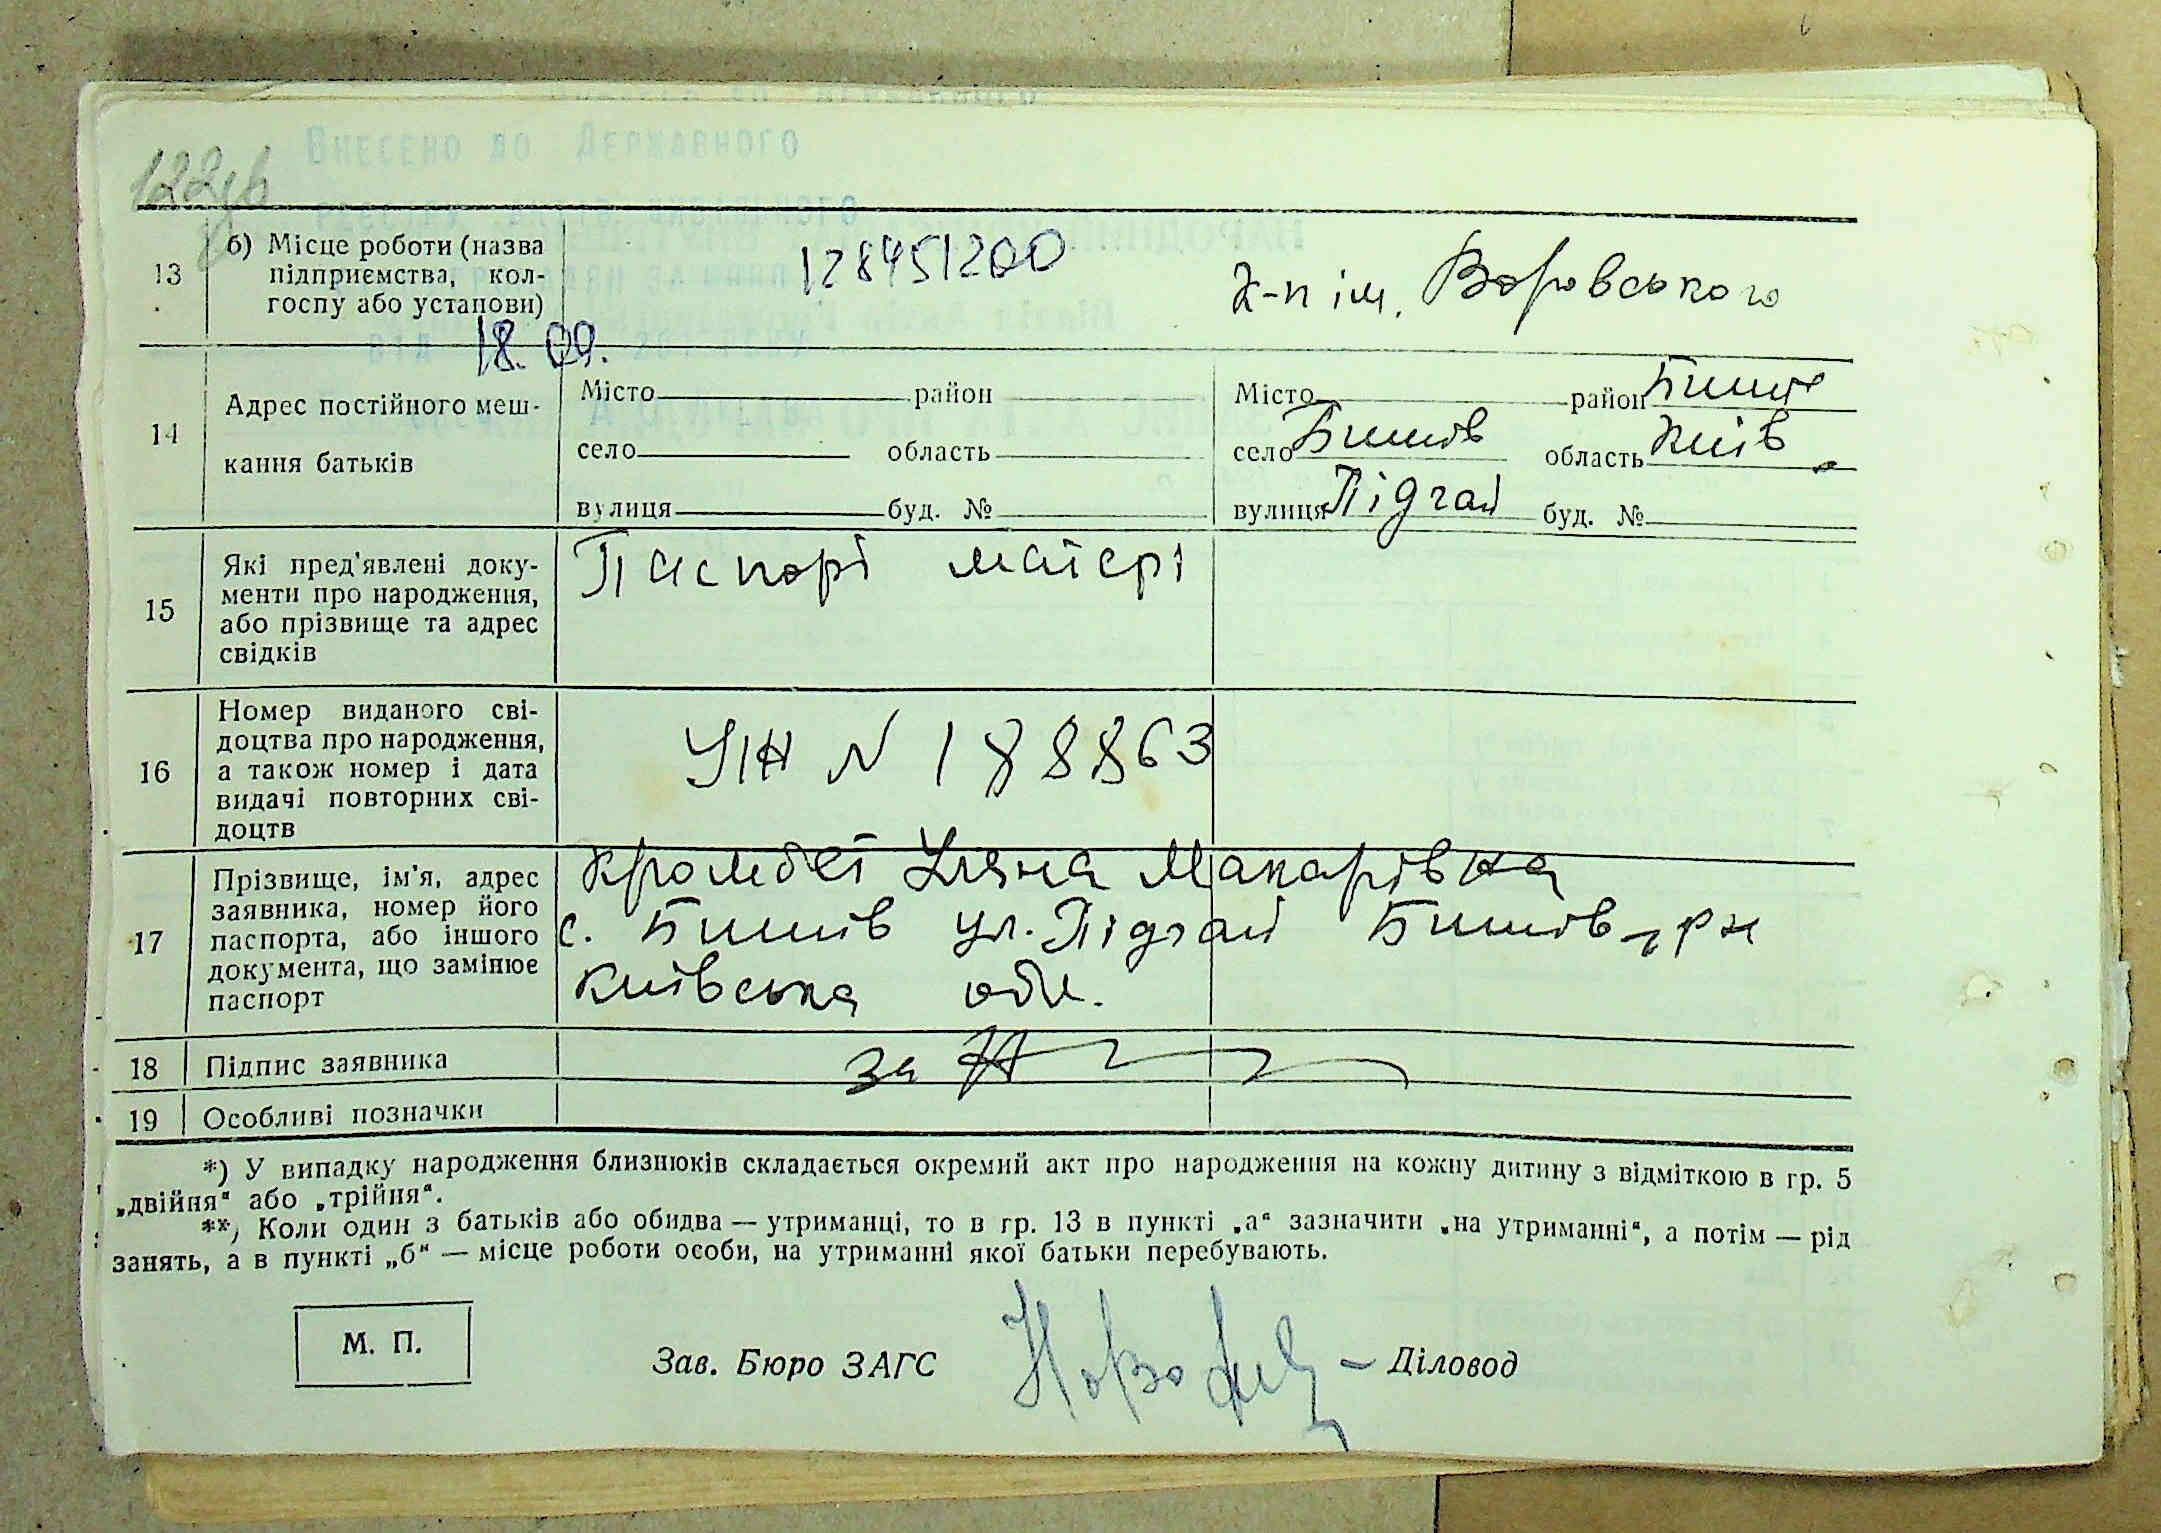 Внесено до Державного
122зв
13 б) Місце роботи (назва підприємства, кол-
госпу або установи)
128451200
к-п ім. Воровського
від 18.09. 201 року
14 Адрес постійного меш-
кання батьків
Місто район
село область
вулиця буд. №
Місто район Бишів
село Бишів область Київ.
вулиця Підгай буд. №
15 Які пред'явлені доку-
менти про народження,
або прізвище та адрес
свідків
Паспорт матері
16 Номер виданого сві-
доцтва про народження,
а також номер і дата
видачі повторних сві-
доцтв
УН N 188863
17 Прізвище, ім'я, адрес
заявника, номер його
паспорта, або іншого
документа, що замінює
паспорт
Уляна Макарівна
с. Бишів ул. Підгай Бишів. р-н
Київська обл.
18 Підпис заявника
за
19 Особливі позначки
*) У випадку народження близнюків складається окремий акт про народження на кожну дитину з відміткою в гр. 5
„двійня“ або „трійня“.
**) Коли один з батьків або обидва — утриманці, то в гр. 13 в пункті „а“ зазначити „на утриманні“, а потім — рід
занять, а в пункті „б“ — місце роботи особи, на утриманні якої батьки перебувають.
М. П.
Зав. Бюро ЗАГС
Діловод